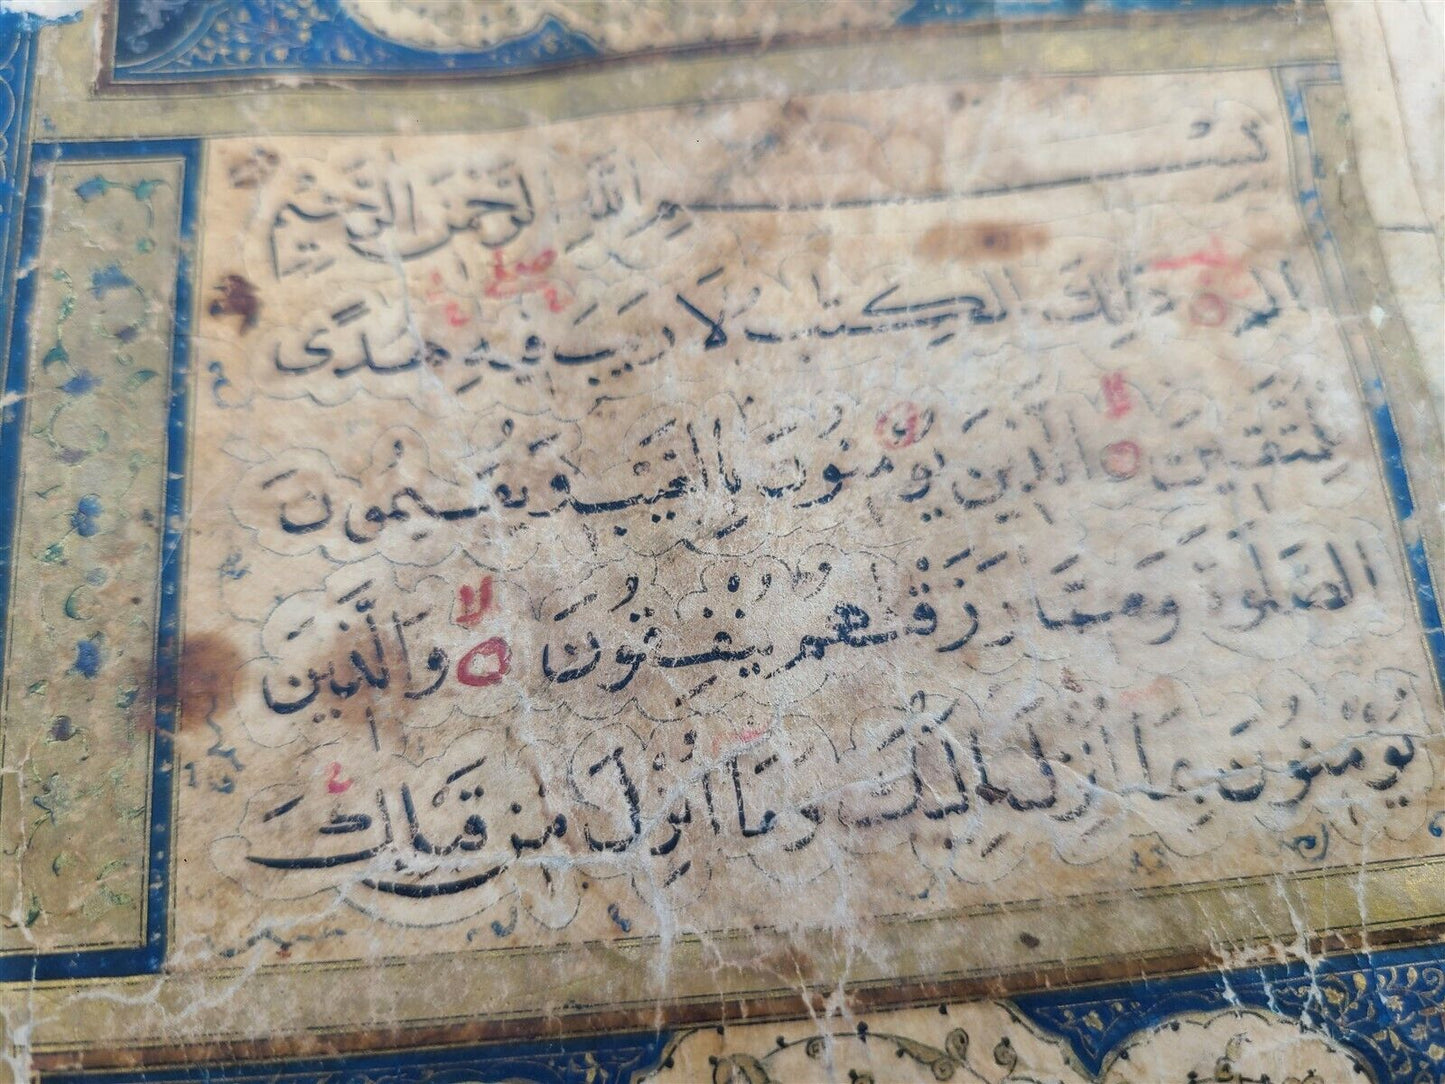 بِسْمِ اللهِ الرَّحْمٰنِ الرَّحِيْمِ
الم ذَلِكَ الْكِتٰبُ لَا رَيْبَ فِيهِ هُدًى
لِلْمُتَّقِينَ الَّذِينَ يُؤْمِنُونَ بِالْغَيْبِ وَيُقِيمُونَ
الصَّلَوٰةَ وَمِمَّا رَزَقْنٰهُمْ يُنْفِقُونَ وَالَّذِينَ
يُؤْمِنُونَ بِمَا أُنْزِلَ إِلَيْكَ وَمَا أُنْزِلَ مِنْ قَبْلِكَ